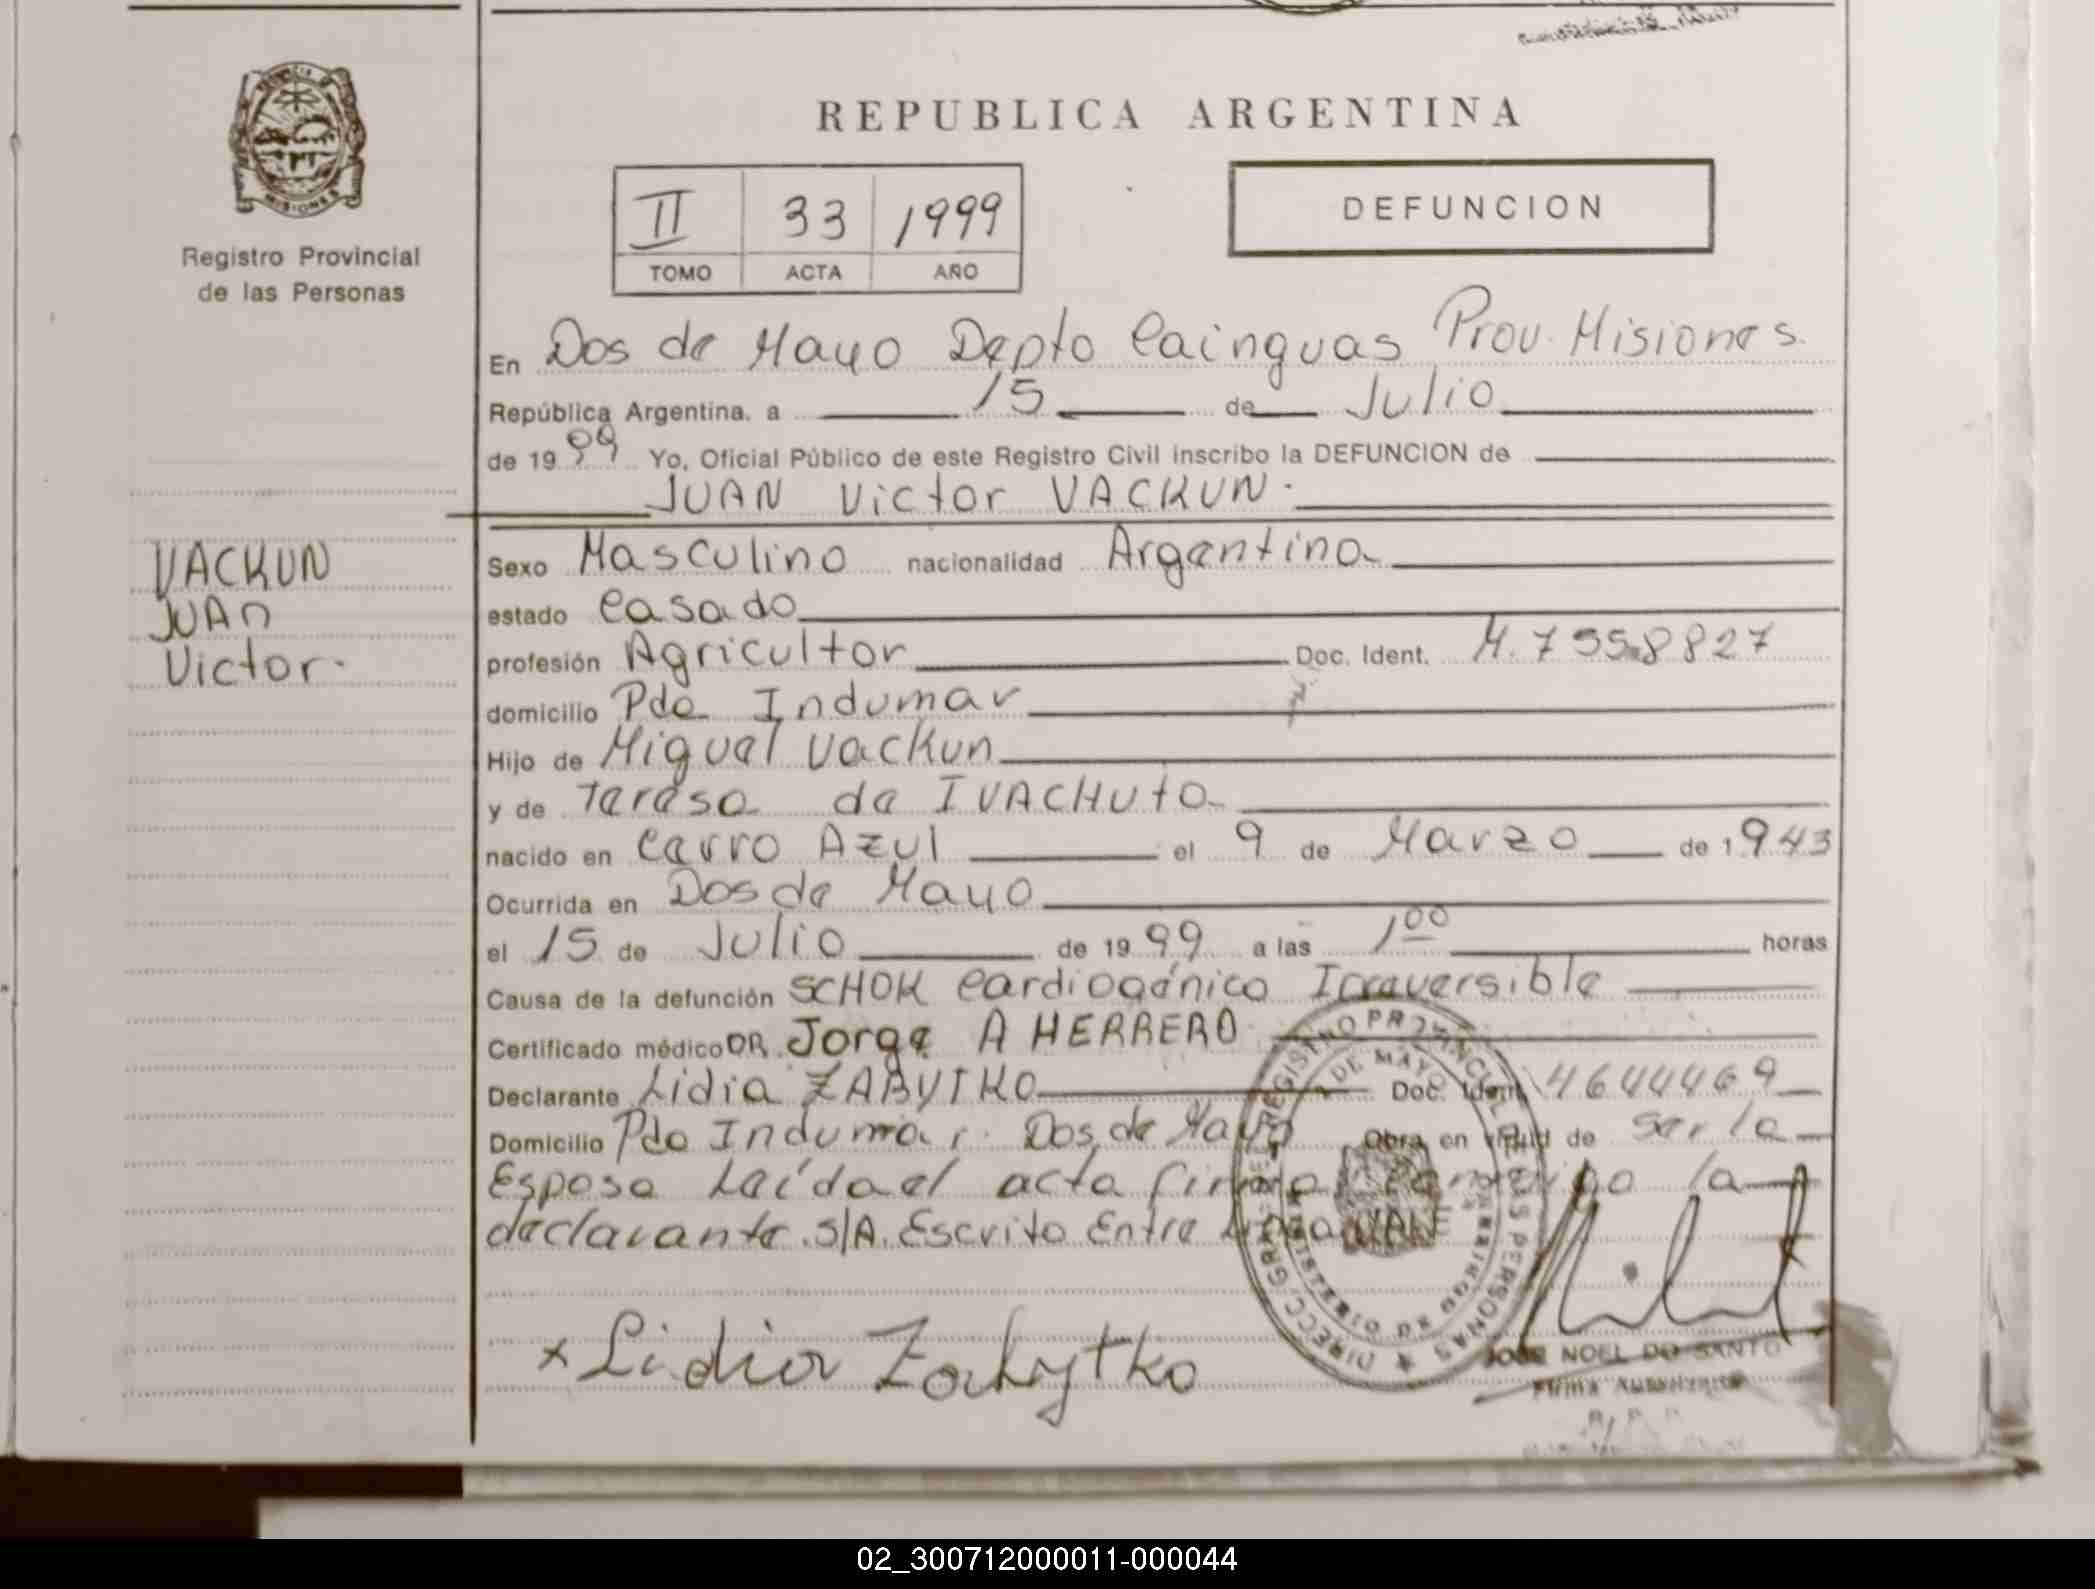 REPUBLICA ARGENTINA
PROVINCIA DE
MISIONES
Registro Provincial
de las Personas
II 33 1999
TOMO ACTA AÑO
DEFUNCION
En Dos de Mayo Depto Cainguas Prov. Misiones.
República Argentina, a 15 de Julio
de 1999 Yo, Oficial Público de este Registro Civil inscribo la DEFUNCION de
JUAN Victor VACKUN.
VACKUN
JUAN
Victor.
Sexo Masculino nacionalidad Argentina
estado Casado
profesión Agricultor Doc. Ident. M. 7558827
domicilio Pdo Indumar
Hijo de Miguel Vackun
y de Teresa de IVACHUTO
nacido en Cerro Azul el 9 de Marzo de 1943
Ocurrida en Dos de Mayo
el 15 de Julio de 1999 a las 1 00 horas
Causa de la defunción SCHOK Cardiogénico Irreversible
Certificado médico DR. Jorge A HERRERO
Declarante Lidia ZABYTKO Doc. Ident. 4644469
Domicilio Pdo Indumar. Dos de Mayo Obra en virtud de ser la
Esposa Leída el acta firma conmigo la
declarante. S/A. Escrito Entre
x Lidia Zabytko
DIRECC. GRAL. DEL REGISTRO PROVINCIAL DE LAS PERSONAS
2 DE MAYO
MINISTERIO DE GOBIERNO
JOSE NOEL DO SANTO
Firma Autorizada
02_300712000011-000044